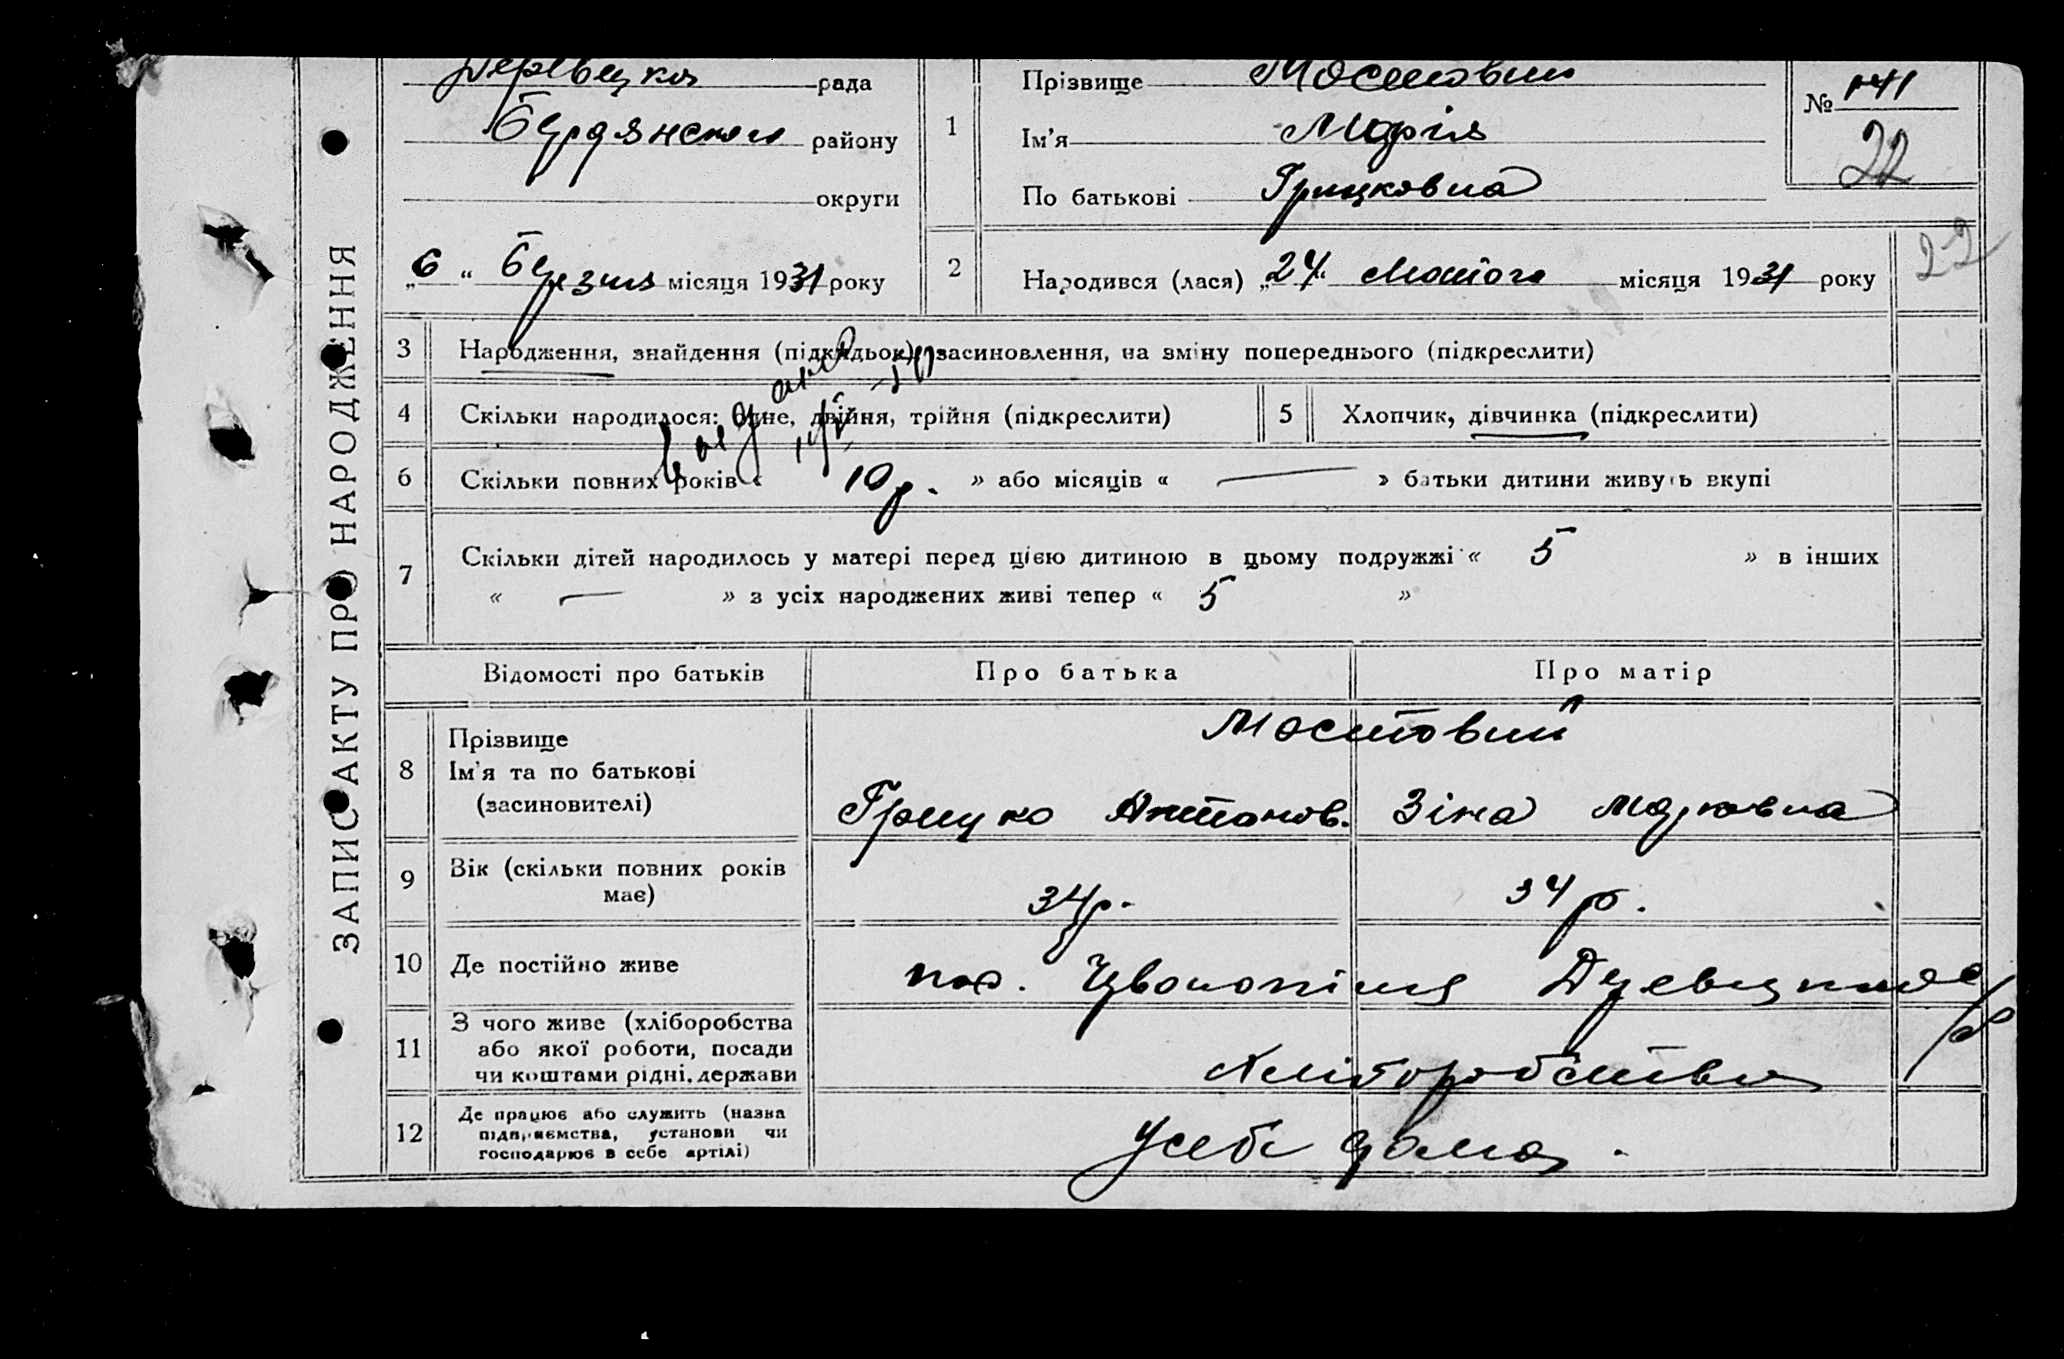 ЗАПИС АКТУ ПРО НАРОДЖЕННЯ
рада
Бердянського району
округи
„6“ березня місяця 1931 року
1
Прізвище Мостовий
Ім'я Марія
По батькові Грицковна
№ 141
22
2
Народився (лася) „24“ Лютого місяця 1931 року
22
3 Народження, знайдення (підкидьок), засиновлення, на зміну попереднього (підкреслити)
4 Скільки народилося: Одне, двійня, трійня (підкреслити)
5 Хлопчик, дівчинка (підкреслити)
6 Скільки повних років « 10 р. » або місяців « — » батьки дитини живуть вкупі
7 Скільки дітей народилось у матері перед цією дитиною в цьому подружжі « 5 » в інших
« — » з усіх народжених живі тепер « 5 »
Відомості про батьків
Про батька
Про матір
8 Прізвище
Ім'я та по батькові
(засиновителі)
Мостовий
Грицко Антонов. Зіна Марковна
9 Вік (скільки повних років
має)
34 р. 34 р.
10 Де постійно живе
пос.
11 З чого живе (хліборобства
або якої роботи, посади
чи коштами рідні, держави
Хліборобства
12 Де працює або служить (назва
підприємства, установи чи
господарює в себе артілі)
У себе дома.